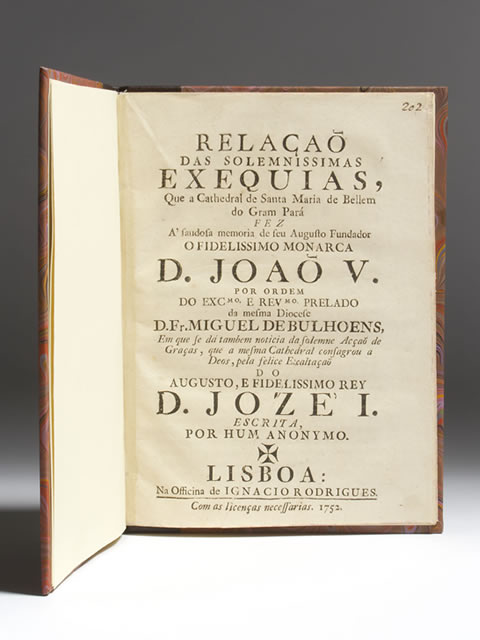 202
RELAÇAÕ
DAS SOLEMNISSIMAS
EXEQUIAS,
Que a Cathedral de Santa Maria de Bellem
do Gram Pará
FEZ
A' saudosa memoria de seu Augusto Fundador
O FIDELISSIMO MONARCA
D. JOAÕ V.
POR ORDEM
DO EXC.MO. E REV.MO. PRELADO
da mesma Diocese
D. Fr. MIGUEL DE BULHOENS,
Em que se dá tambem noticia da solemne Acçaõ de
Graças, que a mesma Cathedral consagrou a
Deos, pela felice Exaltaçaõ
DO
AUGUSTO, E FIDELISSIMO REY
D. JOZE' I.
ESCRITA,
POR HUM ANONYMO.
LISBOA:
Na Officina de IGNACIO RODRIGUES.
Com as licenças necessarias. 1752.